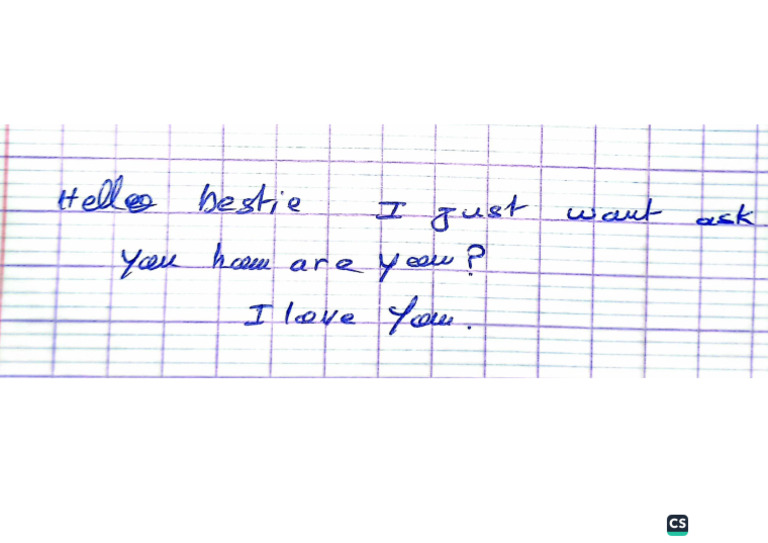 Hello bestie I just want ask
you how are you?
I love you.
CS